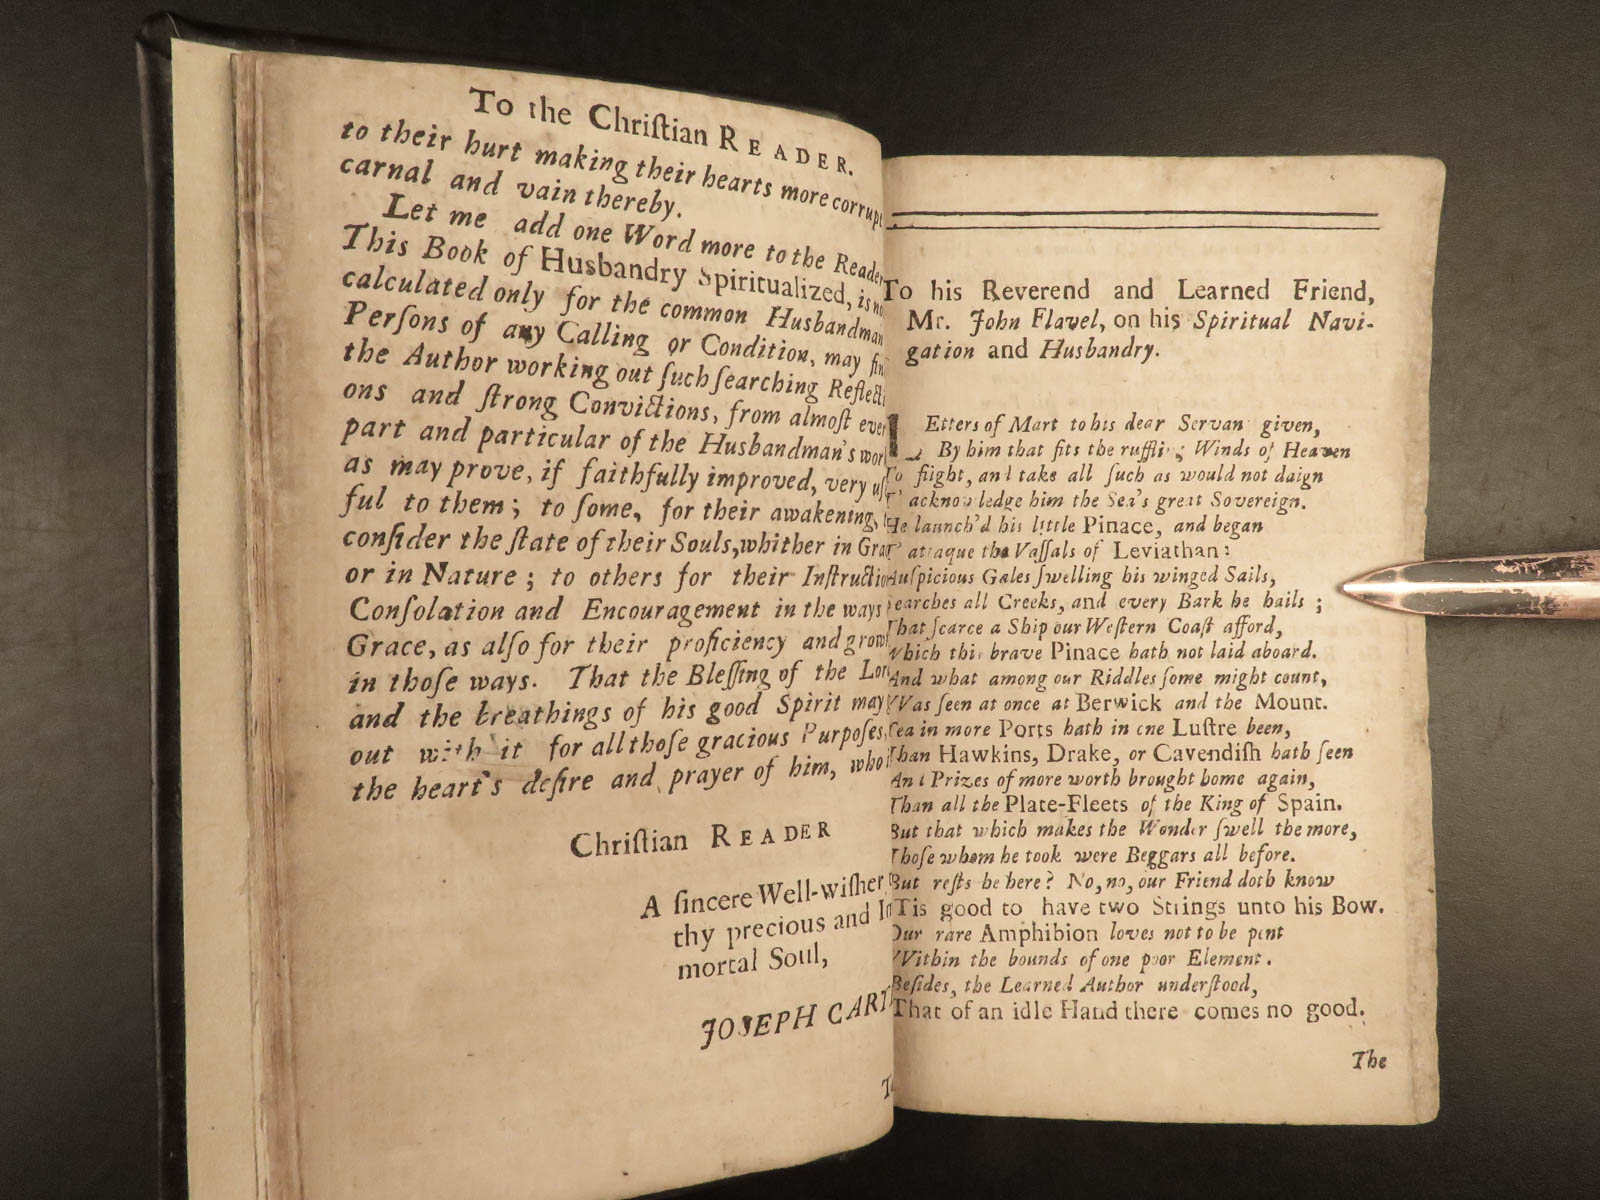 To the Chriſtian READER.
to their hurt making their hearts more corrupt
carnal and vain thereby.
Let me add one Word more to the Reader
This Book of Husbandry Spiritualized, is no
calculated only for the common Husbandman
Perſons of any Calling or Condition, may fin
the Author working out ſuch ſearching Reflecti
ons and ſtrong Convictions, from almoſt ever
part and particular of the Husbandman's wor
as may prove, if faithfully improved, very uſ
ful to them; to ſome, for their awakening,
conſider the ſtate of their Souls, whither in Gra
or in Nature; to others for their Inſtructio
Conſolation and Encouragement in the ways
Grace, as alſo for their proficiency and grow
in thoſe ways. That the Bleſſing of the Lor
and the breathings of his good Spirit may
out with it for all thoſe gracious Purpoſes,
the heart's deſire and prayer of him, who
Chriſtian READER
A ſincere Well-wiſher
thy precious and Im
mortal Soul,
JOSEPH CART
To his Reverend and Learned Friend,
Mr. John Flavel, on his Spiritual Navi-
gation and Husbandry.
Etters of Mart to his dear Servan given,
By him that fits the ruffli; Winds of Heaven
To flight, and take all ſuch as would not daign
T' acknowledge him the Sea's great Sovereign.
He launch'd his little Pinace, and began
T' attaque the Vaſſals of Leviathan:
Auſpicious Gales ſwelling his winged Sails,
Searches all Creeks, and every Bark he hails;
That ſcarce a Ship our Weſtern Coaſt afford,
Which this brave Pinace hath not laid aboard.
And what among our Riddles ſome might count,
VVas ſeen at once at Berwick and the Mount.
Yea in more Ports hath in one Luſtre been,
Than Hawkins, Drake, or Cavendiſh hath ſeen
And Prizes of more worth brought home again,
Than all the Plate-Fleets of the King of Spain.
But that which makes the Wonder ſwell the more,
Thoſe whom he took were Beggars all before.
But reſts he here? No, no, our Friend doth know
'Tis good to have two Strings unto his Bow.
Our rare Amphibion loves not to be pent
VVithin the bounds of one poor Element.
Beſides, the Learned Author underſtood,
That of an idle Hand there comes no good.
The